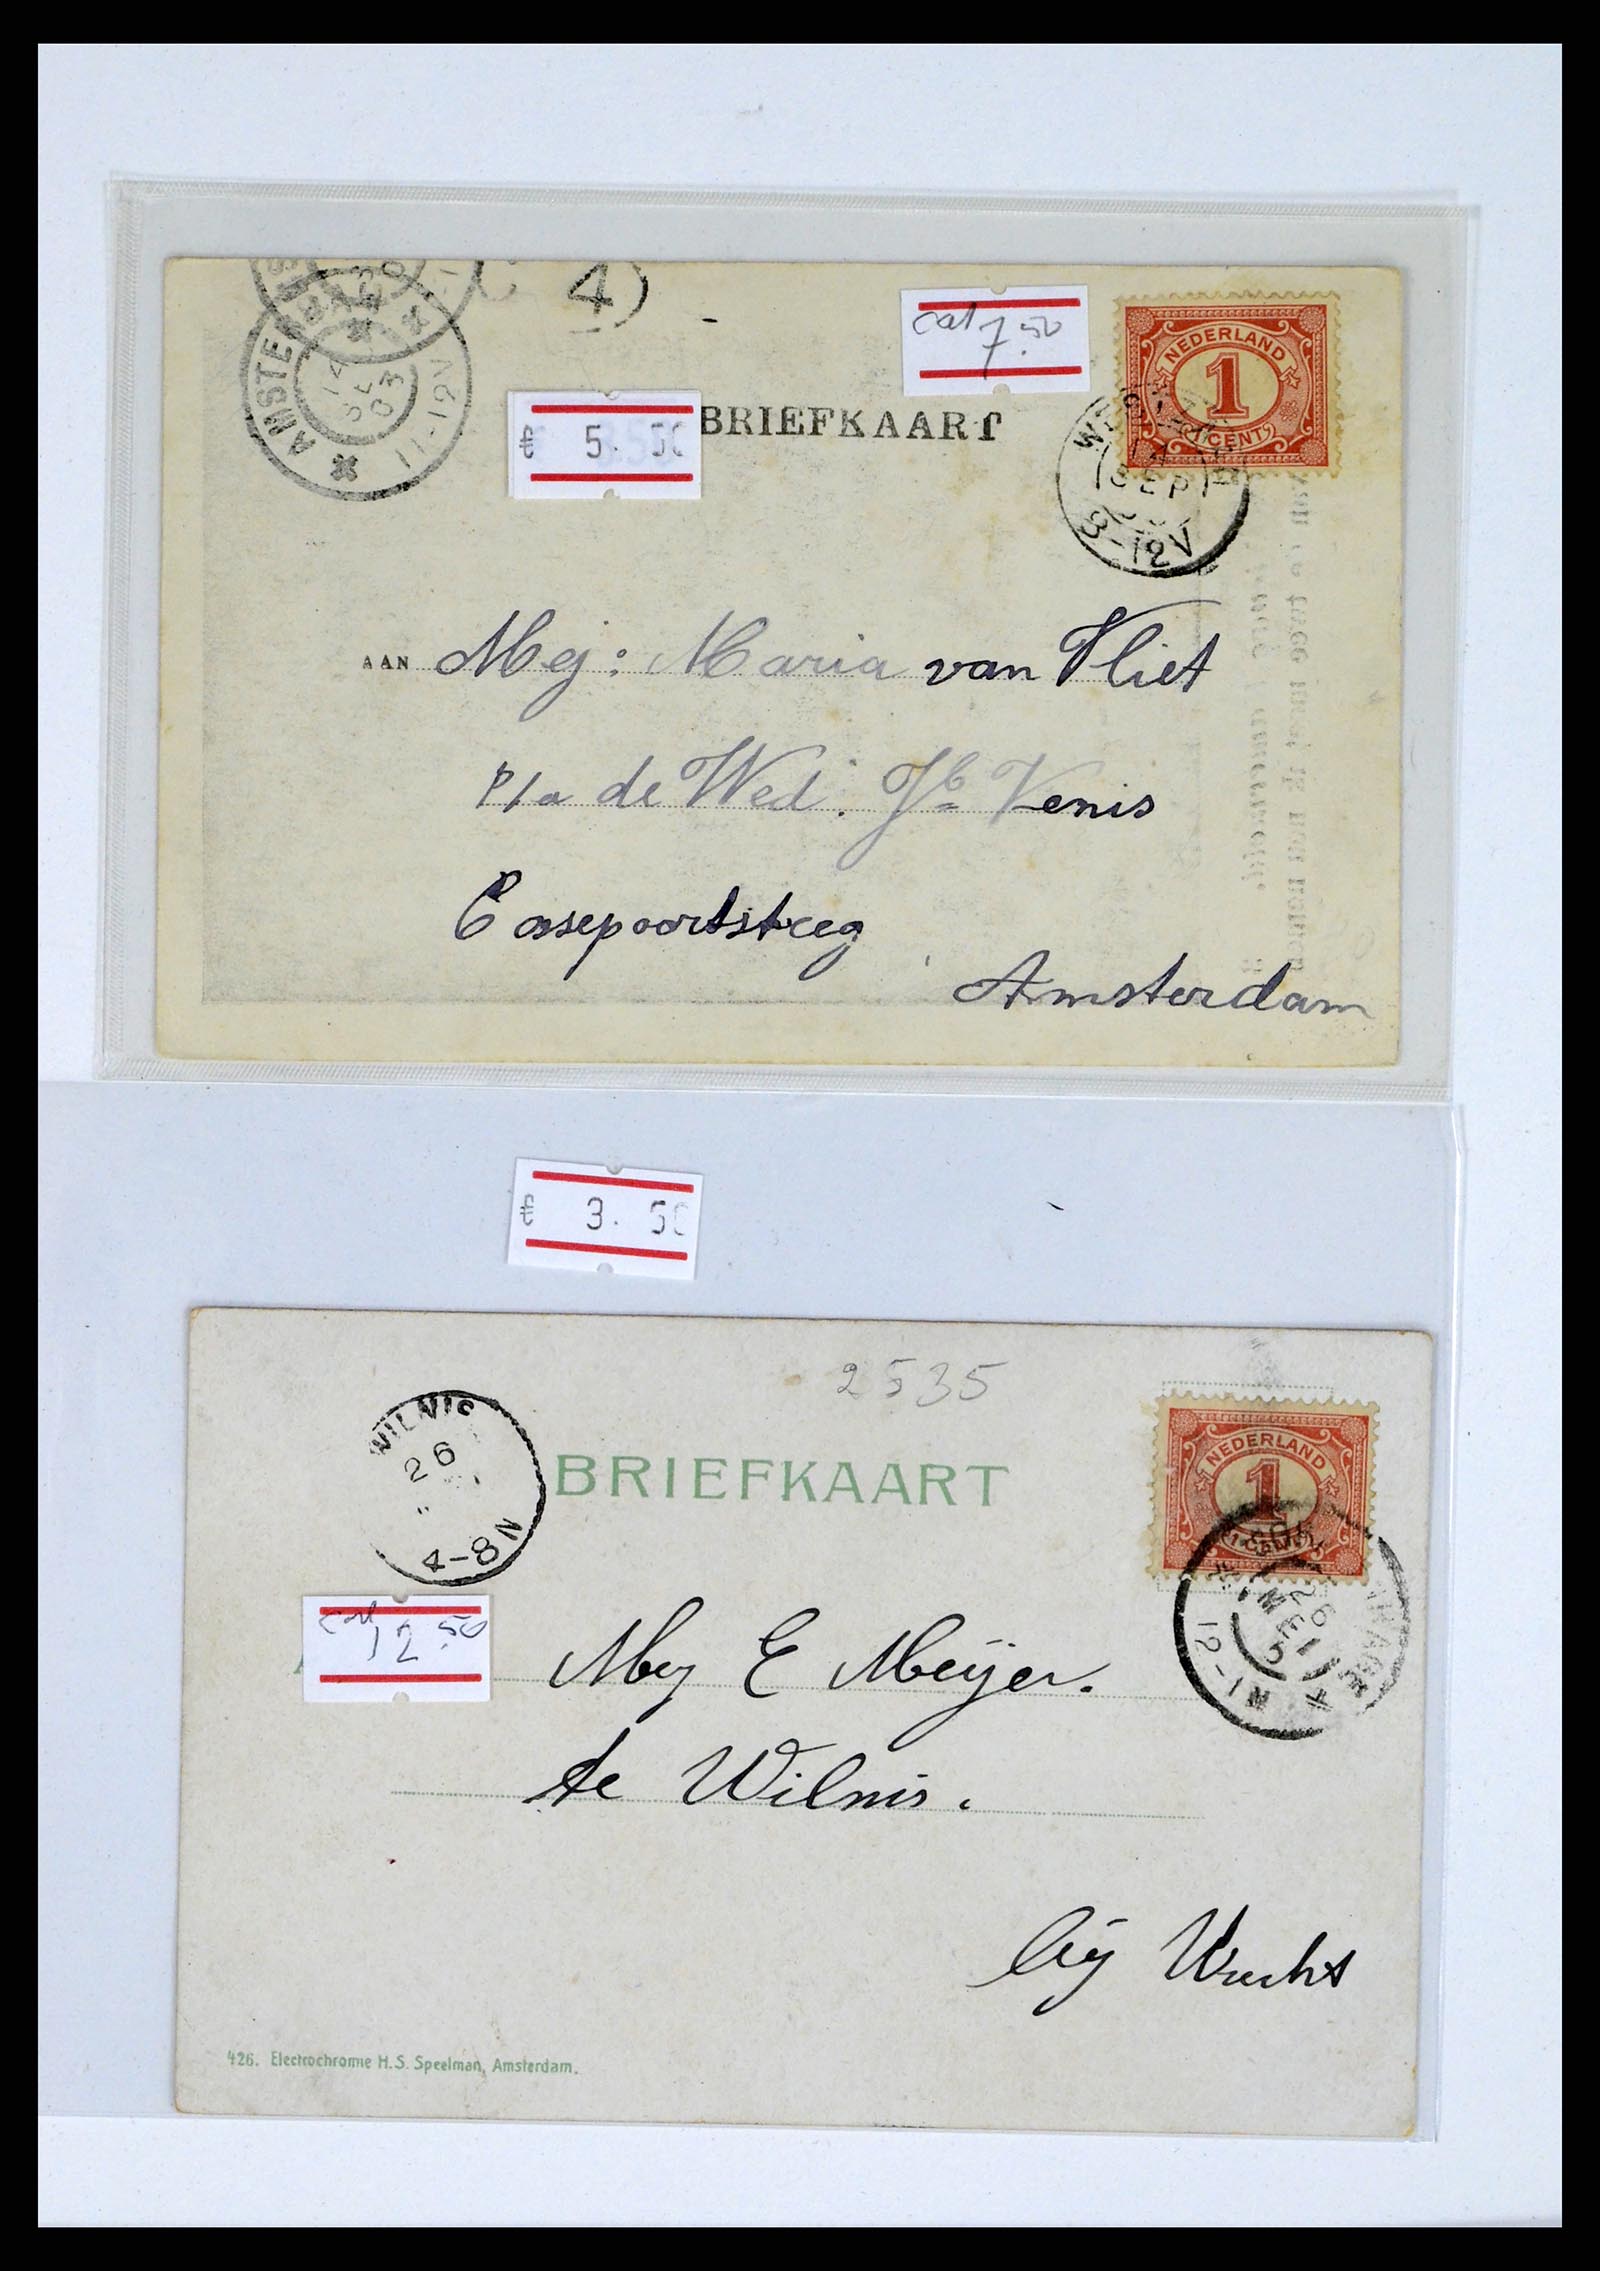 4
cat 7.50
NEDERLAND
1
1 CENT
AMSTERDAM
14
SEP
03
11-12V
€ 5. 50
BRIEFKAART
14
SEP
8-12V
AAN Mej: Maria van Vliet
P/a de Wed. Jb Venis
Amsterdam
€ 3. 50
2535
WILNIS
26
4-8N
BRIEFKAART
NEDERLAND
1
1 CENT
26
12-1N
cat 12.50
Mej E Meijer.
te Wilnis.
bij
426. Electrochromie H.S. Speelman, Amsterdam.